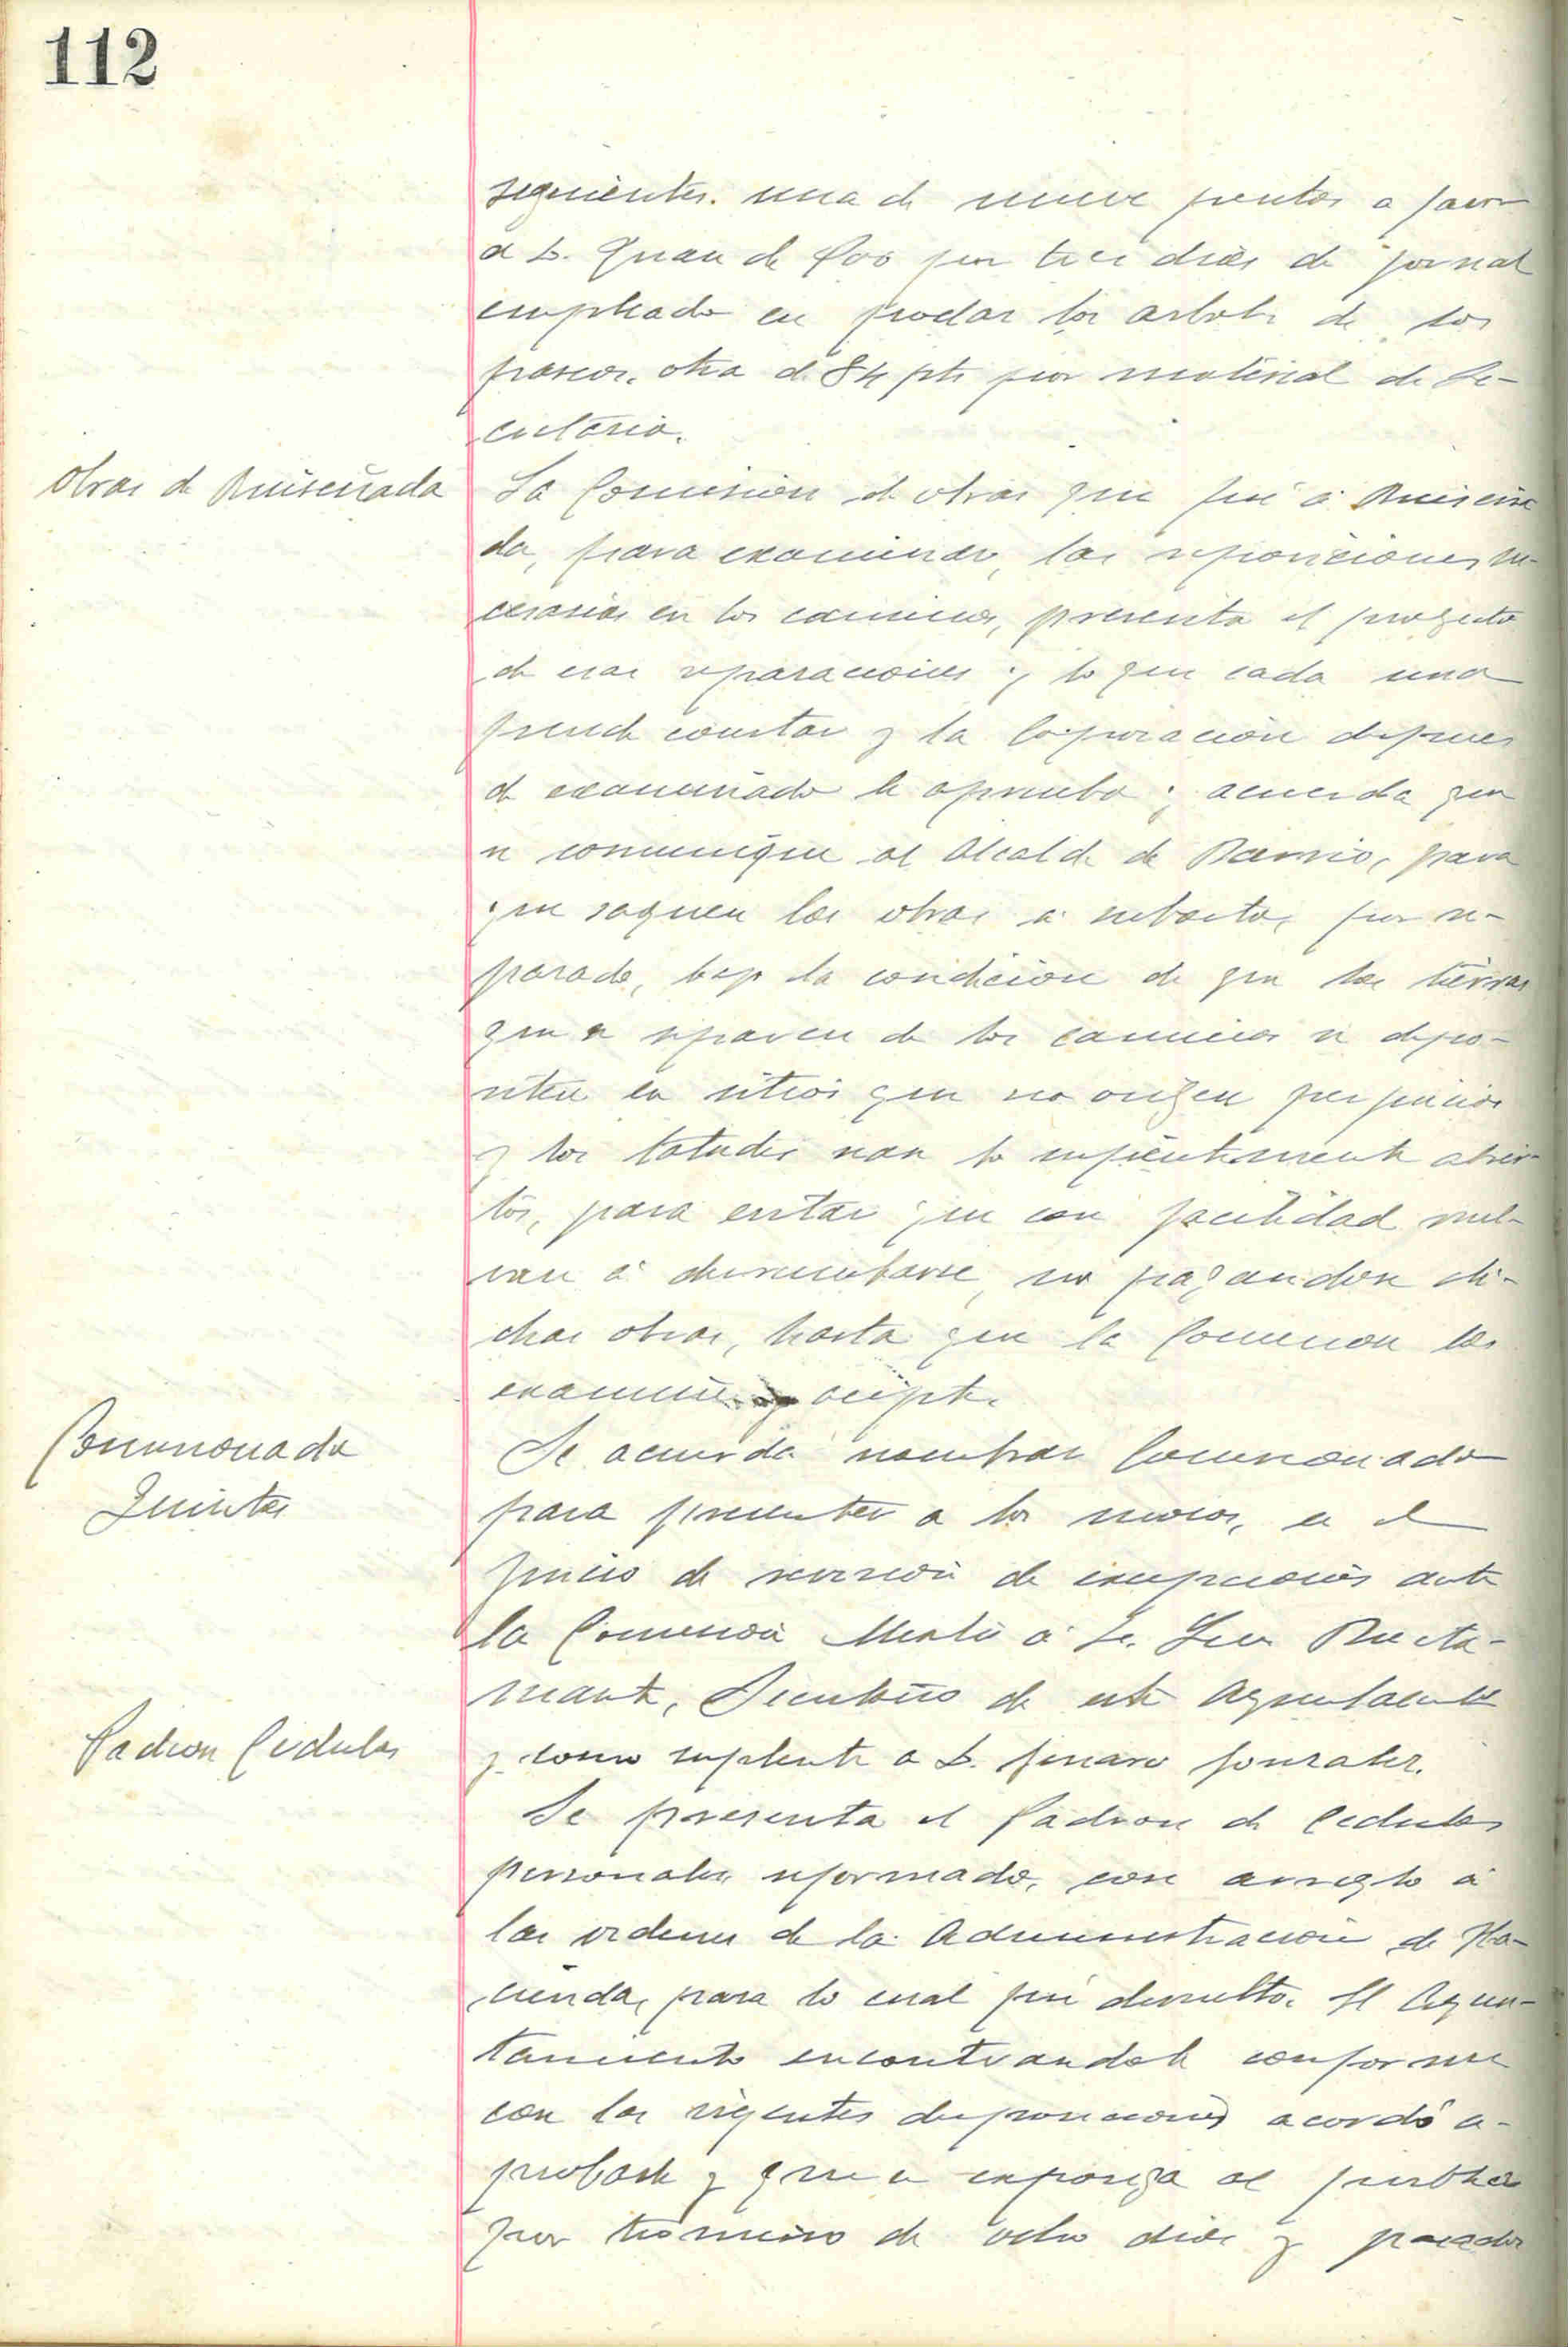 112
seguientes. una de nueve pesetas a favor
a D. Juan de Cos por tres dias de jornal
empleado en podar los arboles de los
paseos, otra de 84 pts por material de Se-
cretaria.
Obras de Ruiseñada
La Comision de obras que fué á Ruiseña
da, para examinar las reposiciones ne-
cesarias en los caminos, presenta el proyecto
de esas reparaciones y lo que cada una
puede constar y la Corporación despues
de examinado le aprueba y acuerda que
se comunique al Alcalde de Barrio, para
que saquen las obras a subasta, por se-
parado, bajo la condicion de que las tierras
que se separen de los caminos se depo-
siten en sitios que no origen perjuicios
y los taludes sean lo suficientemente abier-
tos, para evitar que con facilidad vuel-
van á derrumbarse, no pagandose di-
chas obras, hasta que la Comision las
examine y acepte.
Comisionado
Quintas
Se acuerda nombrar Comisionado
para presentar a los mozos, en el
juicio de revision de excepciones ante
la Comision Mixta á D. Busta-
mante, Secretario de este Ayuntamiento
y como suplente a D. Genaro Gonzalez.
Padron Cedulas
Se presenta el Padron de Cedulas
personales reformado, con arreglo á
las ordenes de la Administracion de Ha-
cienda, para lo cual fué devuelto. El Ayun-
tamiento encontrandole conforme
con las vigentes disposiciones acordó a-
probarle y que se exponga al publico
por termino de ocho dias y pasados